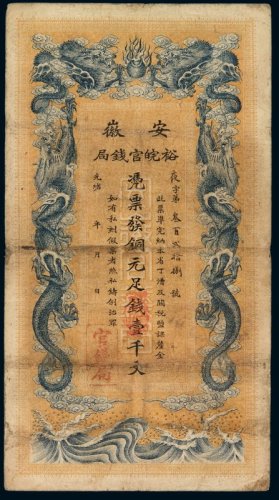 安徽
裕皖官錢局
夜字第 叁百弍拾捌 號
此票準完納本省丁漕及關稅鹽課釐金
憑票發銅元足錢壹千文
如有私刻假票者照私鑄例治罪
光緒 年 月 日